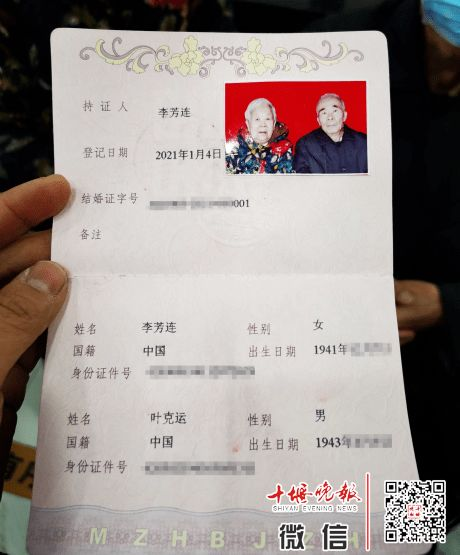 持证人 李芳连
登记日期 2021年1月4日
结婚证字号 001
备注
姓名 李芳连 性别 女
国籍 中国 出生日期 1941年
身份证件号
姓名 叶克运 性别 男
国籍 中国 出生日期 1943年
身份证件号
十堰晚报
SHIYAN EVENING NEWS
微信
M Z H B J Z H